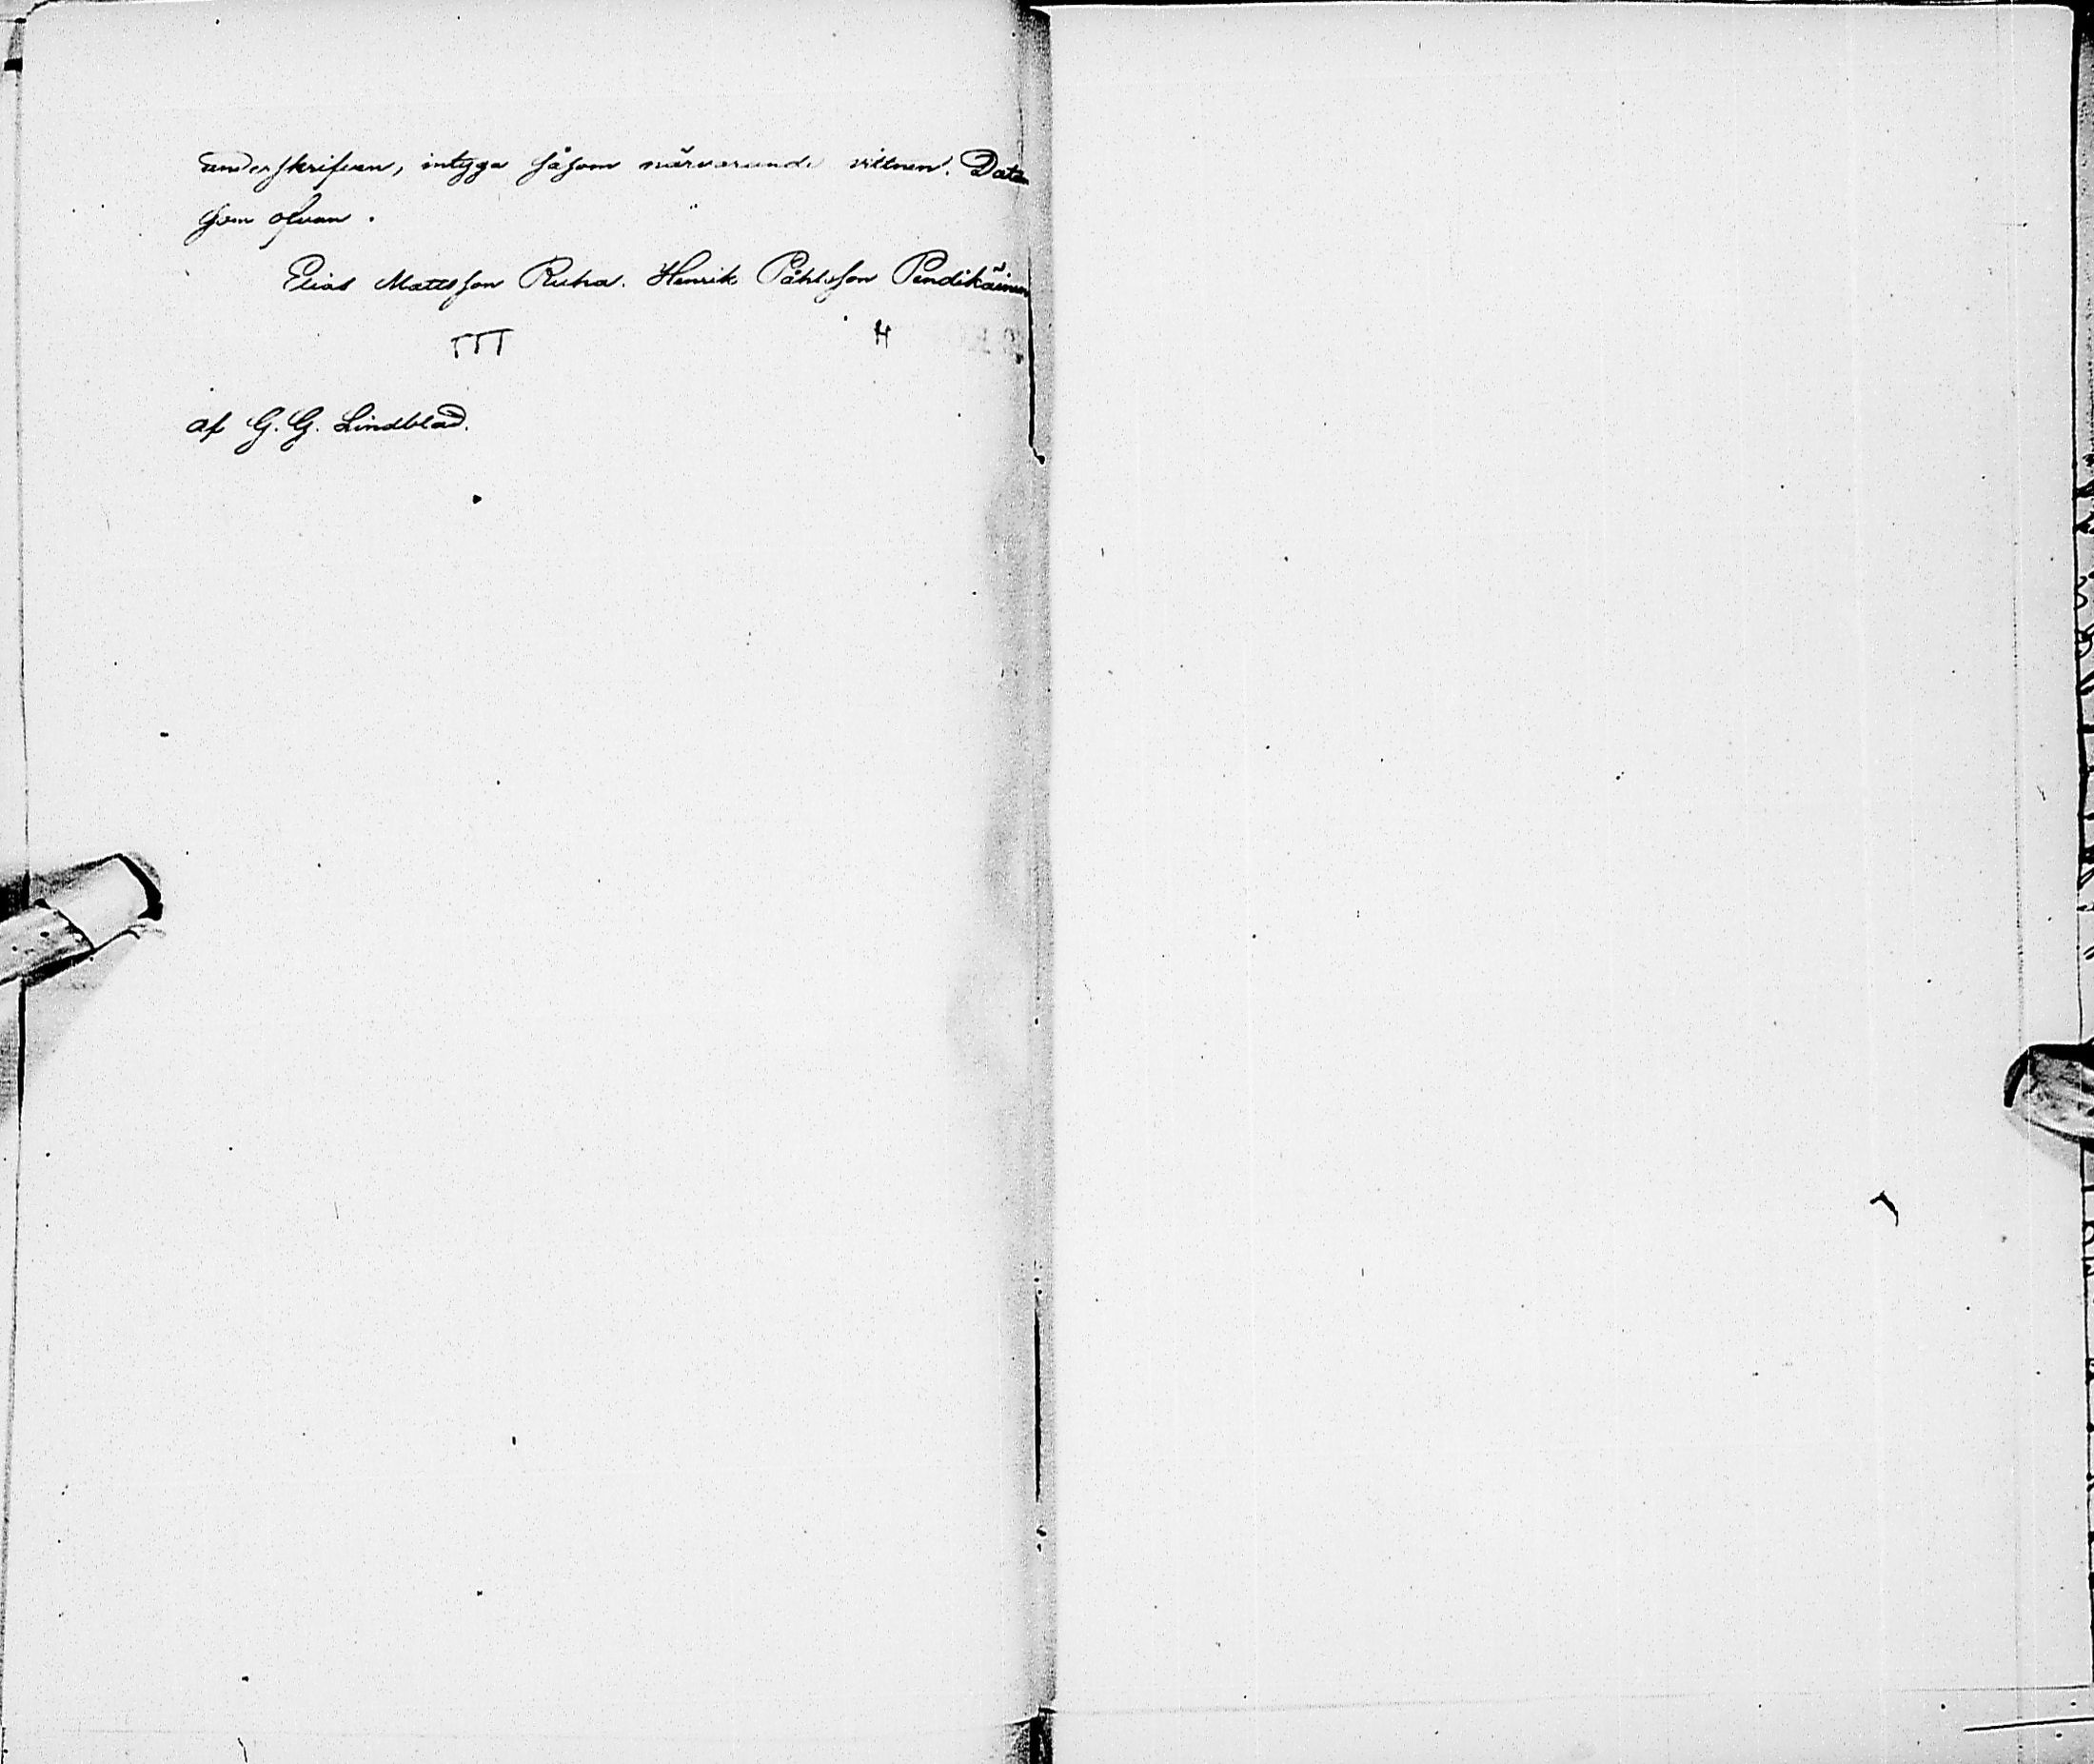 underskrifven, intyga såsom närvarande vittnen. Datum
som ofvan.
Elias Mattsson Ruha. Henrik Påhlsson Pendikäinen
TTT H
af G. G. Lindblad.